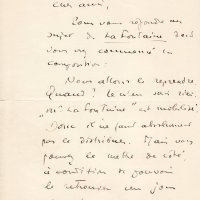 cher ami,
Nous vous répondu au
sujet de La Fontaine dont
vous avez commencé la
composition:
Nous allons le reprendre
Quand? Je n'en sais rien,
"La Fontaine" est mobilisé.
Donc il ne faut absolument
pas le distribuer. Mais vous
pouvez le mettre de côté,
à condition de pouvoir
le retrouver un jour